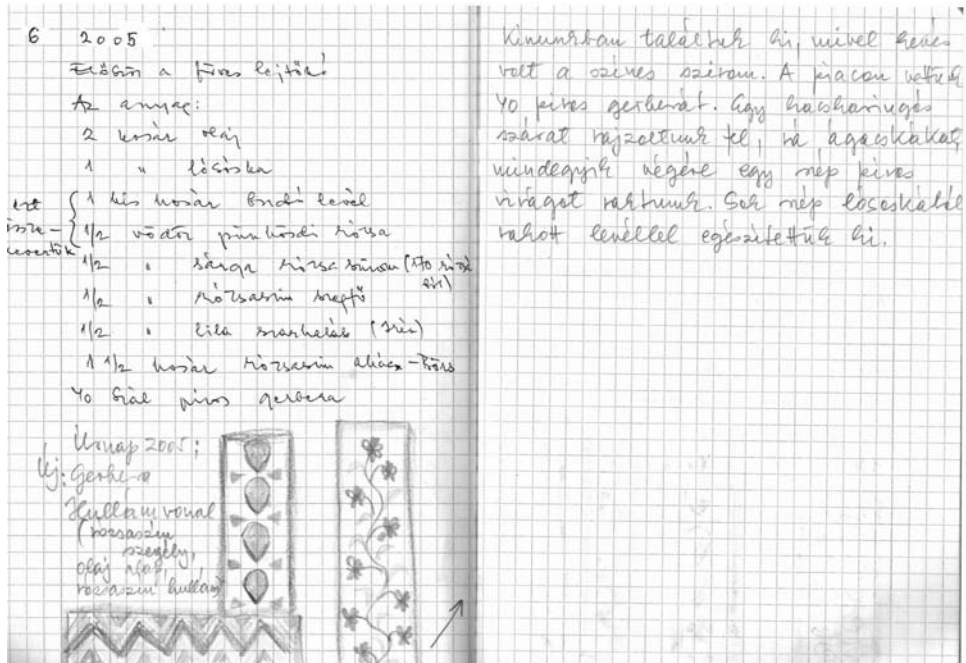 6 2005
Először a füves lejtők!
Az anyag:
2 kosár olaj
1 " lósóska
1 kis kosár Bodó levél
ezt össze-kevertük
1/2 vödör pünkösdi rózsa
1/2 " sárga rózsa szirom (170 rózsa
1/2 " rózsaszín szegfű
1/2 " lila szarkaláb
1 1/2 kosár rózsaszín akácz -
40 szál piros gerbera
Úrnap 2005:
Új: Gerbera
Hullámvonal
(rózsaszín
szegély,
olaj alap,
rózsaszín hullám)
Kínunkban találtuk ki, mivel kevés
volt a színes szirom. A piacon vettünk
40 piros gerberát. Egy kacskaringós
szárat rajzoltunk fel, rá ágacskákat,
mindegyik végére egy szép piros
virágot raktunk. Sok szép lósóskából
rakott levéllel egészítettük ki.